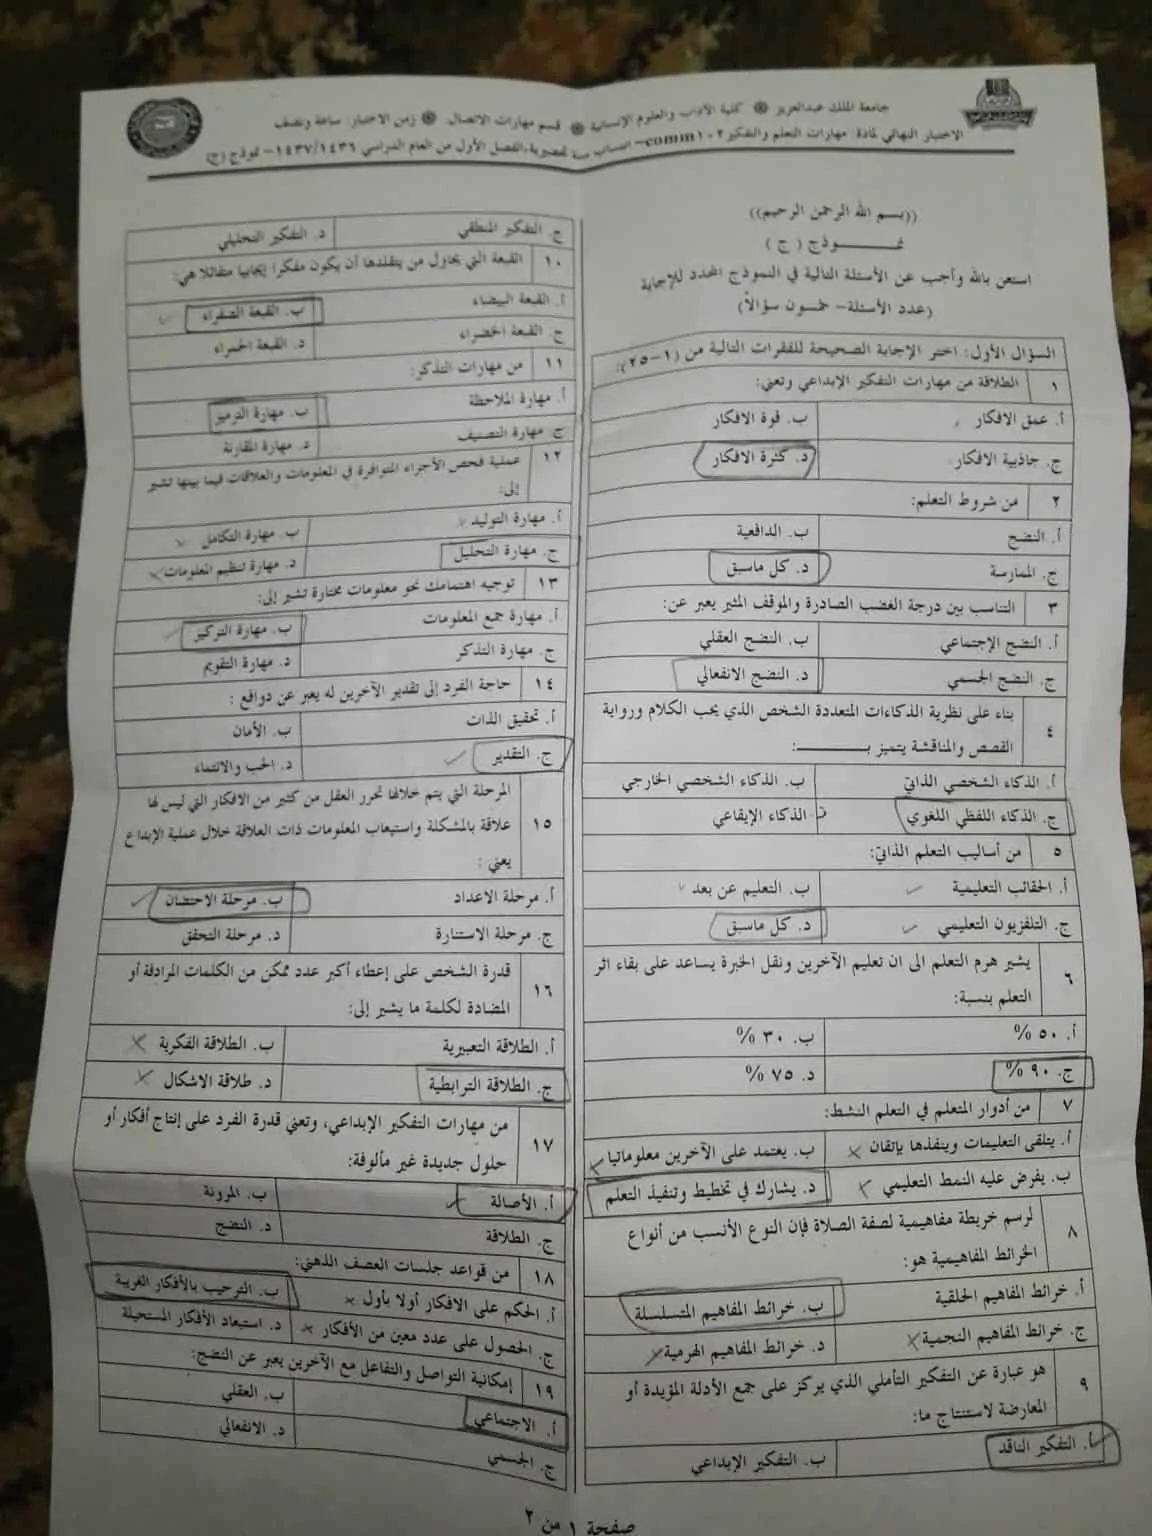 جامعة الملك عبدالعزيز ❁ كلية الآداب والعلوم الإنسانية ❁ قسم مهارات الاتصال ❁ زمن الاختبار: ساعة ونصف
الاختبار النهائي لمادة: مهارات التعلم والتفكير comm١٠٢ – انتساب سنة تحضيرية، الفصل الأول من العام الدراسي ١٤٣٧/١٤٣٦ – نموذج (ج)
((بسم الله الرحمن الرحيم))
نمـــوذج ( ج )
استعن بالله وأجب عن الأسئلة التالية في النموذج المحدد للإجابة
(عدد الأسئلة– خمسون سؤالاً)
السؤال الأول: اختر الإجابة الصحيحة للفقرات التالية من (١–٢٥):
١ الطلاقة من مهارات التفكير الإبداعي وتعني:
أ. عمق الافكار ب. قوة الافكار
ج. جاذبية الافكار د. كثرة الافكار
٢ من شروط التعلم:
أ. النضج ب. الدافعية
ج. الممارسة د. كل ماسبق
٣ التناسب بين درجة الغضب الصادرة والموقف المثير يعبر عن:
أ. النضج الإجتماعي ب. النضج العقلي
ج. النضج الجسمي د. النضج الانفعالي
٤ بناء على نظرية الذكاءات المتعددة الشخص الذي يحب الكلام ورواية
القصص والمناقشة يتميز بـــــــــ:
أ. الذكاء الشخصي الذاتي ب. الذكاء الشخصي الخارجي
ج. الذكاء اللفظي اللغوي د. الذكاء الإيقاعي
٥ من أساليب التعلم الذاتي:
أ. الحقائب التعليمية ب. التعليم عن بعد
ج. التلفزيون التعليمي د. كل ماسبق
٦ يشير هرم التعلم الى ان تعليم الآخرين ونقل الخبرة يساعد على بقاء اثر
التعلم بنسبة:
أ. ٥٠ % ب. ٣٠ %
ج. ٩٠ % د. ٧٥ %
٧ من أدوار المتعلم في التعلم النشط:
أ. يتلقى التعليمات وينفذها بإتقان ب. يعتمد على الآخرين معلوماتيا
ب. يفرض عليه النمط التعليمي د. يشارك في تخطيط وتنفيذ التعلم
٨ لرسم خريطة مفاهيمية لصفة الصلاة فإن النوع الأنسب من أنواع
الخرائط المفاهيمية هو:
أ. خرائط المفاهيم الحلقية ب. خرائط المفاهيم المتسلسلة
ج. خرائط المفاهيم النجمية د. خرائط المفاهيم الهرمية
٩ هو عبارة عن التفكير التأملي الذي يركز على جمع الأدلة المؤيدة أو
المعارضة لاستنتاج ما:
أ. التفكير الناقد ب. التفكير الإبداعي
ج. التفكير المنطقي د. التفكير التحليلي
١٠ القبعة التي يحاول من يتقلدها أن يكون مفكرا إيجابيا متفائلا هي:
أ. القبعة البيضاء ب. القبعة الصفراء
ج. القبعة الخضراء د. القبعة الحمراء
١١ من مهارات التذكر:
أ. مهارة الملاحظة ب. مهارة الترميز
ج. مهارة التصنيف د. مهارة المقارنة
١٢ عملية فحص الأجزاء المتوافرة في المعلومات والعلاقات فيما بينها تشير
إلى:
أ. مهارة التوليد ب. مهارة التكامل
ج. مهارة التحليل د. مهارة تنظيم المعلومات
١٣ توجيه اهتمامك نحو معلومات مختارة تشير إلى:
أ. مهارة جمع المعلومات ب. مهارة التركيز
ج. مهارة التذكر د. مهارة التقويم
١٤ حاجة الفرد إلى تقدير الآخرين له يعبر عن دوافع :
أ. تحقيق الذات ب. الأمان
ج. التقدير د. الحب والانتماء
١٥ المرحلة التي يتم خلالها تحرر العقل من كثير من الافكار التي ليس لها
علاقة بالمشكلة واستيعاب المعلومات ذات العلاقة خلال عملية الإبداع
يعني :
أ. مرحلة الاعداد ب. مرحلة الاحتضان
ج. مرحلة الاستنارة د. مرحلة التحقق
١٦ قدرة الشخص على إعطاء أكبر عدد ممكن من الكلمات المرادفة أو
المضادة لكلمة ما يشير إلى:
أ. الطلاقة التعبيرية ب. الطلاقة الفكرية
ج. الطلاقة الترابطية د. طلاقة الاشكال
١٧ من مهارات التفكير الإبداعي، وتعني قدرة الفرد على إنتاج أفكار أو
حلول جديدة غير مألوفة:
أ. الأصالة ب. المرونة
ج. الطلاقة د. النضج
١٨ من قواعد جلسات العصف الذهني:
أ. الحكم على الافكار أولا بأول ب. الترحيب بالأفكار الغريبة
ج. الحصول على عدد معين من الأفكار د. استبعاد الأفكار المستحيلة
١٩ إمكانية التواصل والتفاعل مع الآخرين يعبر عن النضج:
أ. الاجتماعي ب. العقلي
ج. الجسمي د. الانفعالي
صفحة ١ من ٢